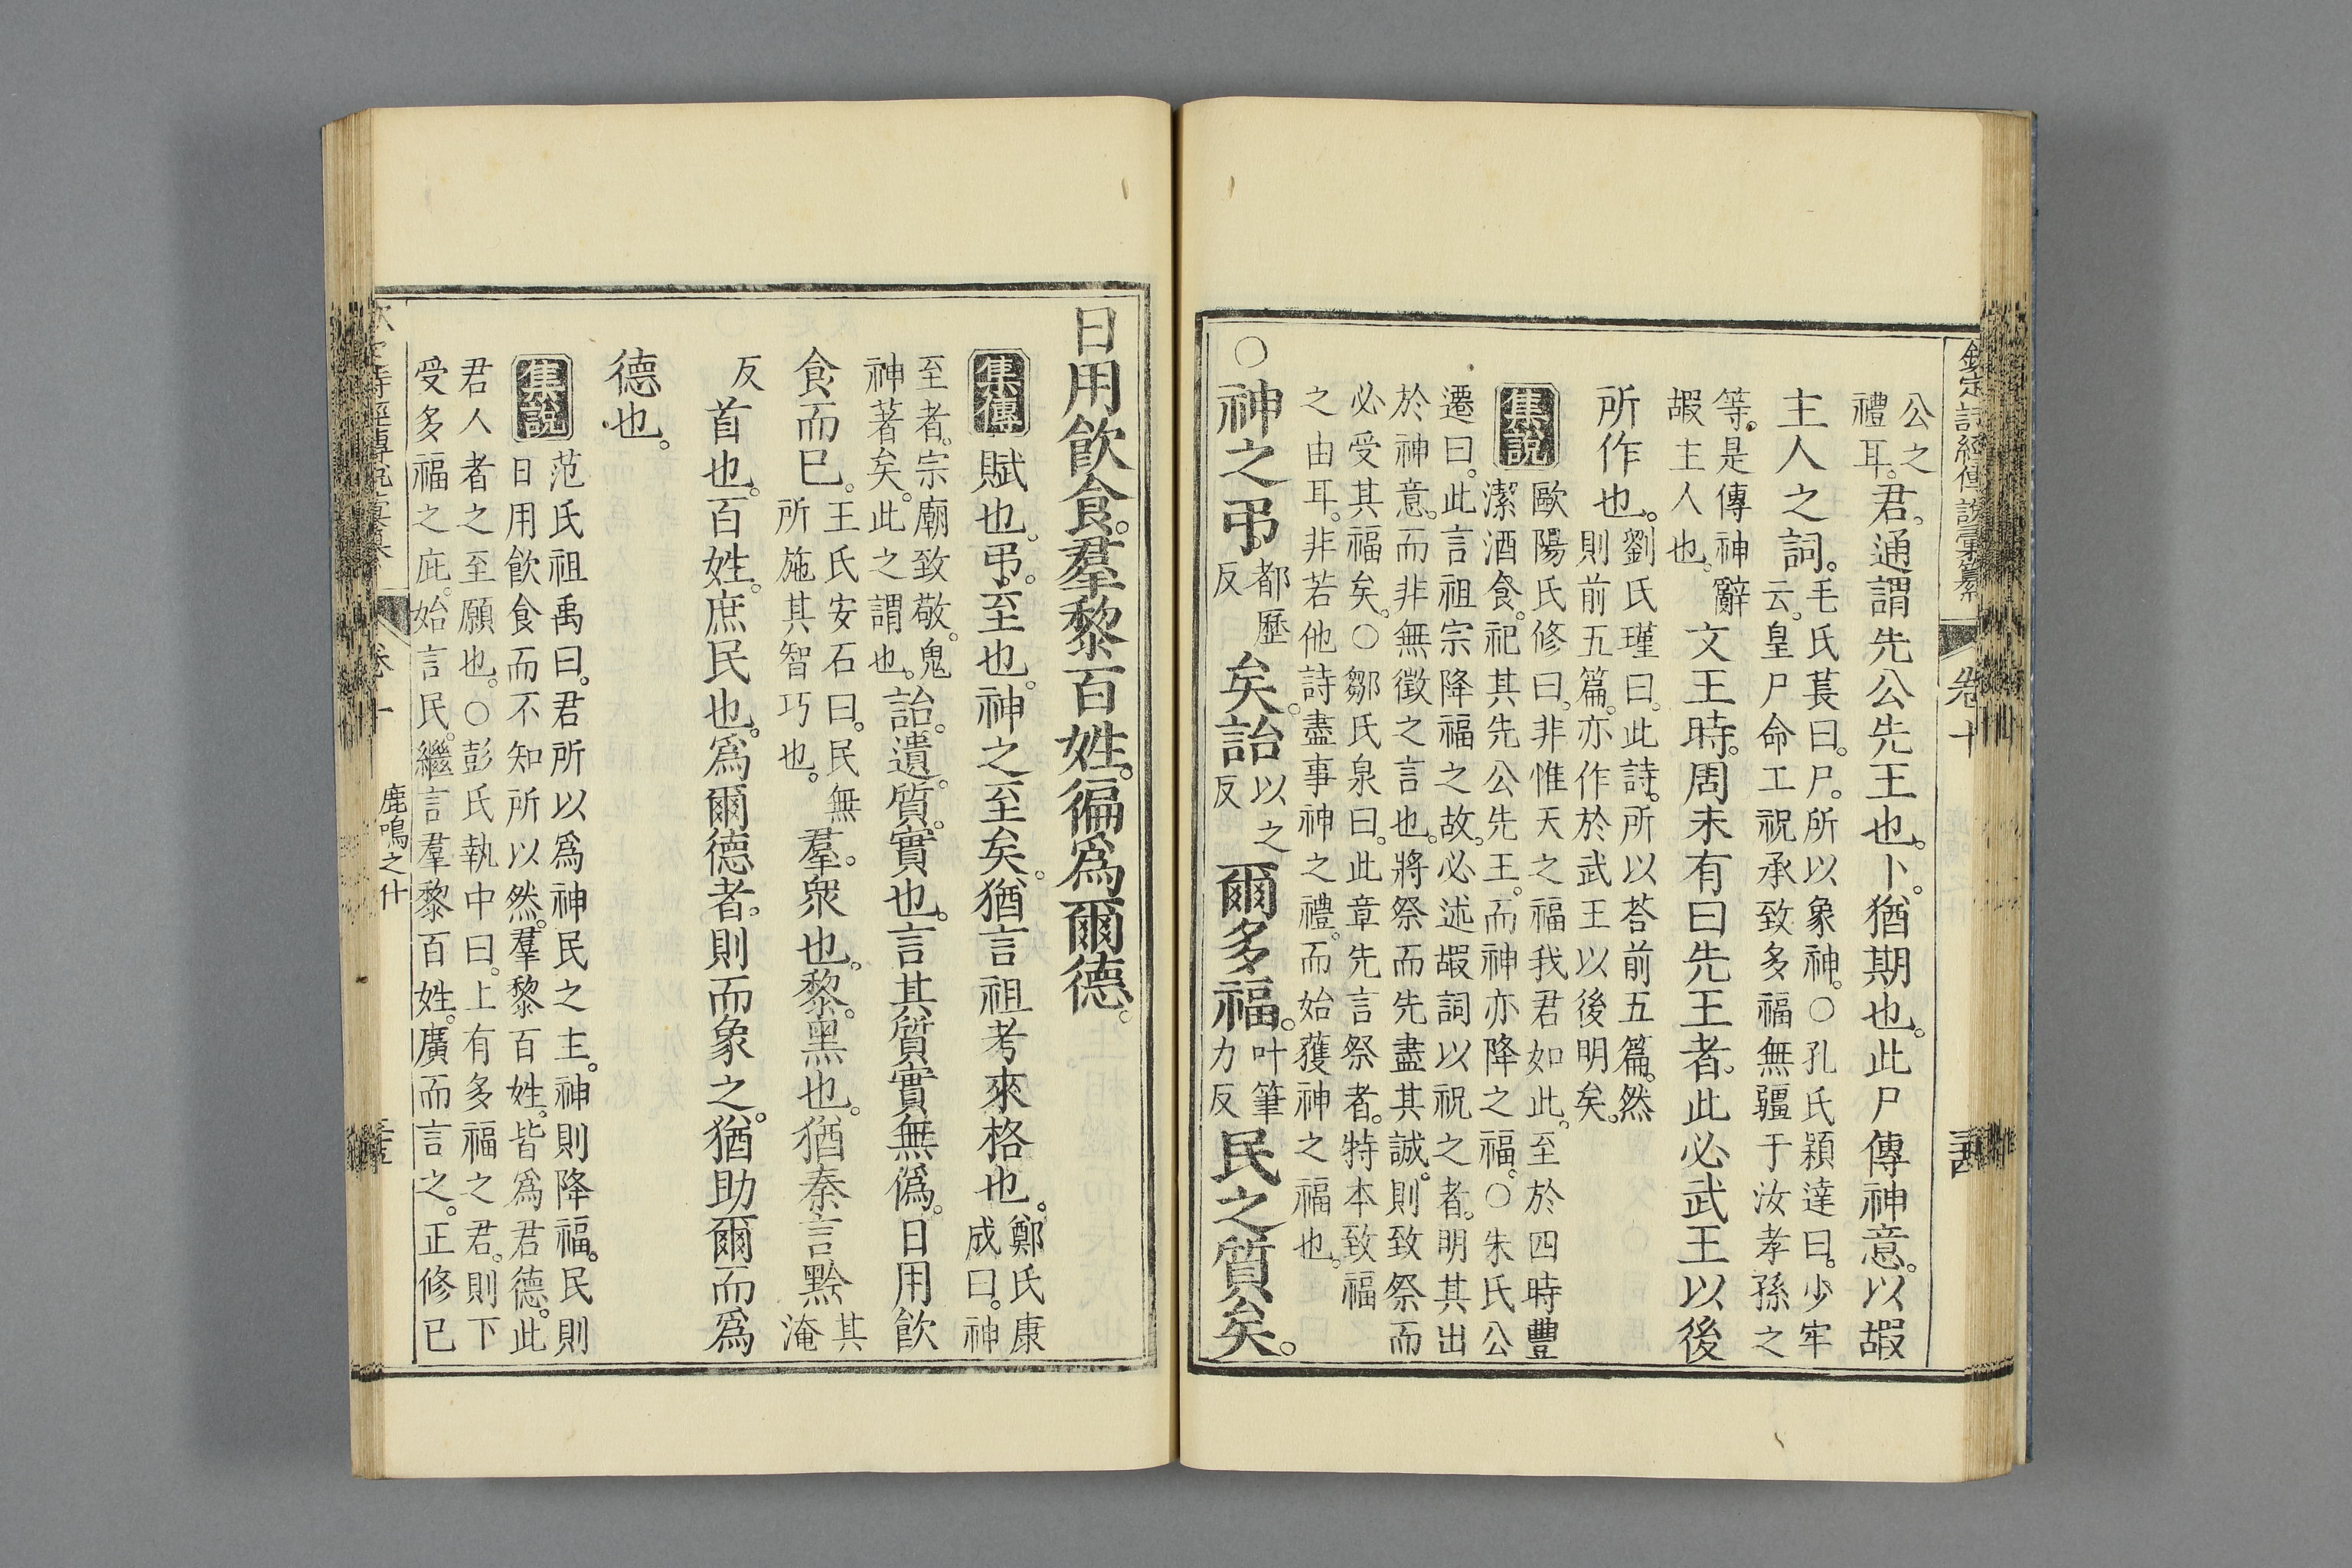 欽定詩經傳說彙纂 卷十
公之
禮耳。君。通謂先公先王也。卜。猶期也。此尸傳神意。以嘏
主人之詞。毛氏萇曰。尸。所以象神。○孔氏穎達曰。少牢
云。皇尸命工祝承致多福無疆于汝孝孫之
等。是傳神辭
嘏主人也。文王時。周未有曰先王者。此必武王以後
所作也。劉氏瑾曰。此詩。所以荅前五篇。然
則前五篇。亦作於武王以後明矣。
集說 歐陽氏修曰。非惟天之福我君如此。至於四時豐
潔酒食。祀其先公先王。而神亦降之福。○朱氏公
遷曰。此言祖宗降福之故。必述嘏詞以祝之者。明其出
於神意。而非無徵之言也。將祭而先盡其誠。則致祭而
必受其福矣。○鄒氏泉曰。此章先言祭者。特本致福
之由耳。非若他詩盡事神之禮。而始獲神之福也。
○神之弔都歷反矣。詒以之反爾多福。叶筆力反民之質矣。
日用飲食。羣黎百姓。徧爲爾德。
集傳 賦也。弔。至也。神之至矣。猶言祖考來格也。鄭氏康
成曰。神
至者。宗廟致敬。鬼
神著矣。此之謂也。詒。遺。質。實也。言其質實無僞。日用飲
食而已。王氏安石曰。民無
所施其智巧也。羣。衆也。黎。黑也。猶秦言黔其
淹
反首也。百姓。庶民也。爲爾德者。則而象之。猶助爾而爲
德也。
集說 范氏祖禹曰。君所以爲神民之主。神則降福。民則
日用飲食而不知所以然。羣黎百姓。皆爲君德。此
君人者之至願也。○彭氏執中曰。上有多福之君。則下
受多福之庇。始言民。繼言羣黎百姓。廣而言之。正修已
鹿鳴之什